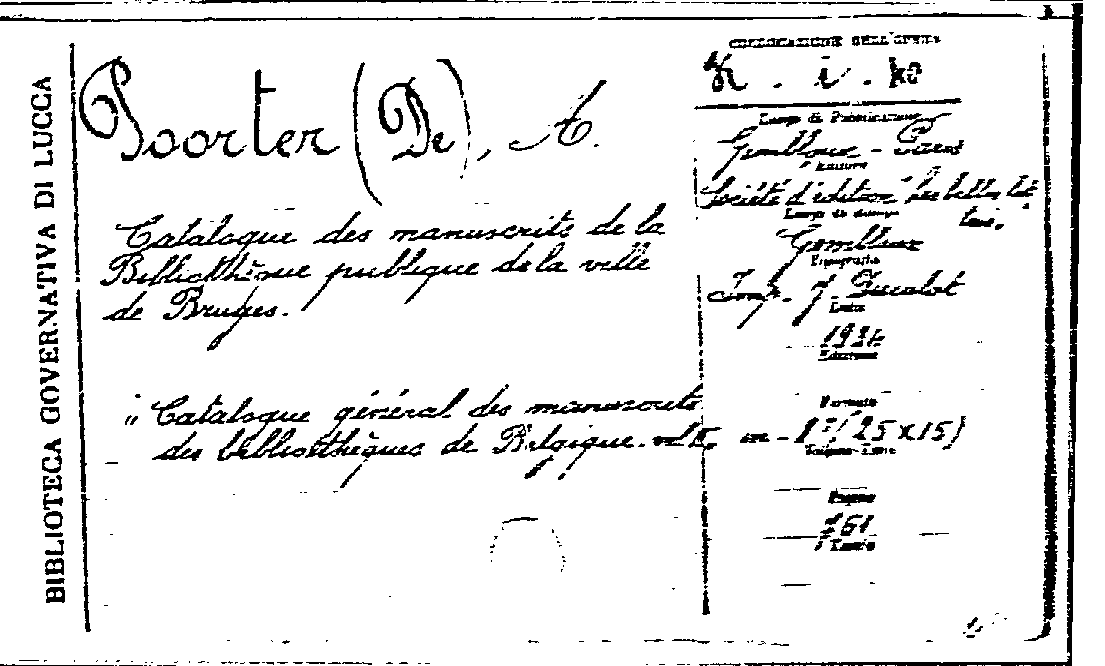 BIBLIOTECA GOVERNATIVA DI LUCCA
Poorter (De), A.
Catalogue des manuscrits de la
Bibliothèque publique de la ville
de Bruges.
"Catalogue général des manuscrits
des bibliothèques de Belgique. vol
COLLOCAZIONE DELL'OPERA
Luogo di Pubblicazione
Gembloux - Paris
Editore
Société d'édition "Les belles let
tres.
Luogo di stampa
Gembloux
Tipografia
Imp. J. Duculot
Data
1934
Edizione
Formato
in-8°(25x15)
Pagine
761